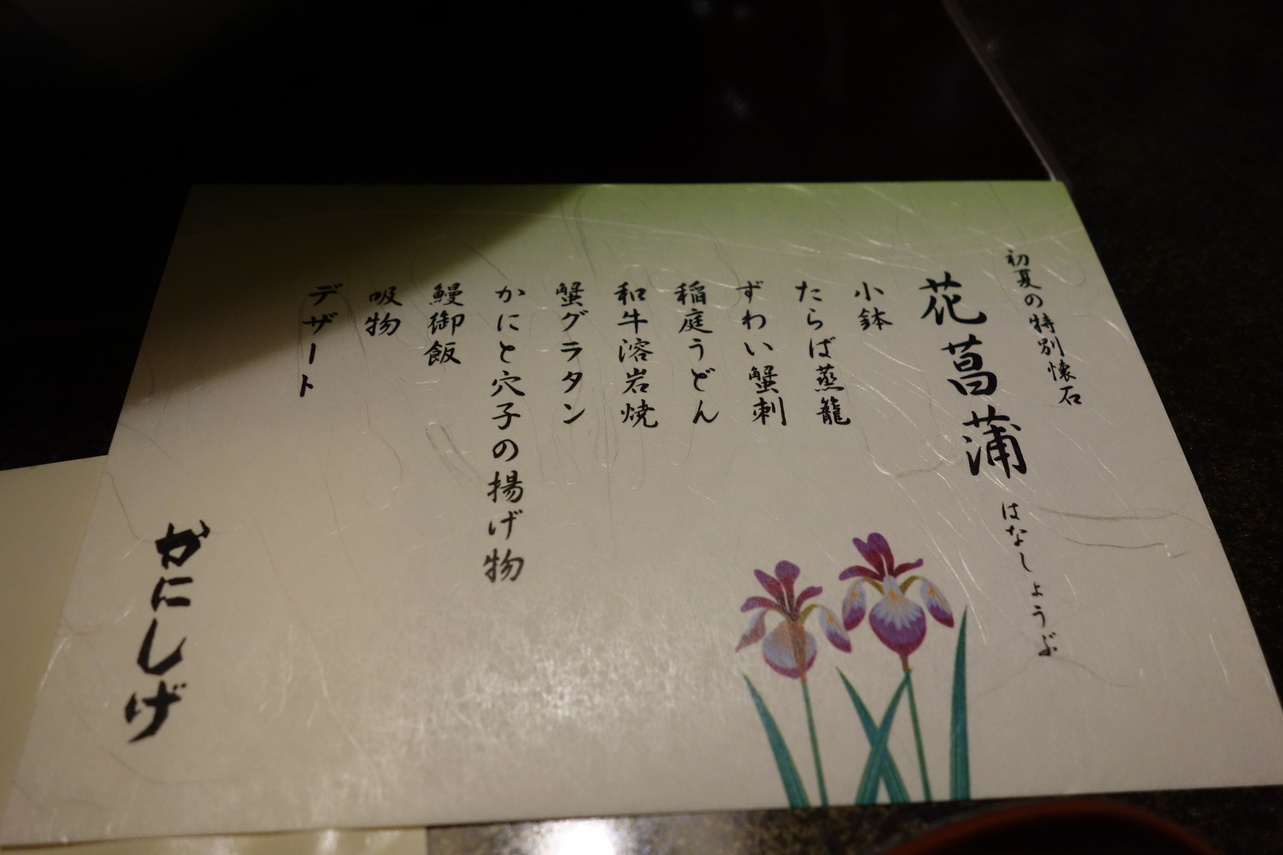 初夏の特別懐石
花菖蒲
はなしょうぶ
小鉢
たらば蒸籠
ずわい蟹刺
稲庭うどん
和牛溶岩焼
蟹グラタン
かにと穴子の揚げ物
鰻御飯
吸物
デザート
かにしげ